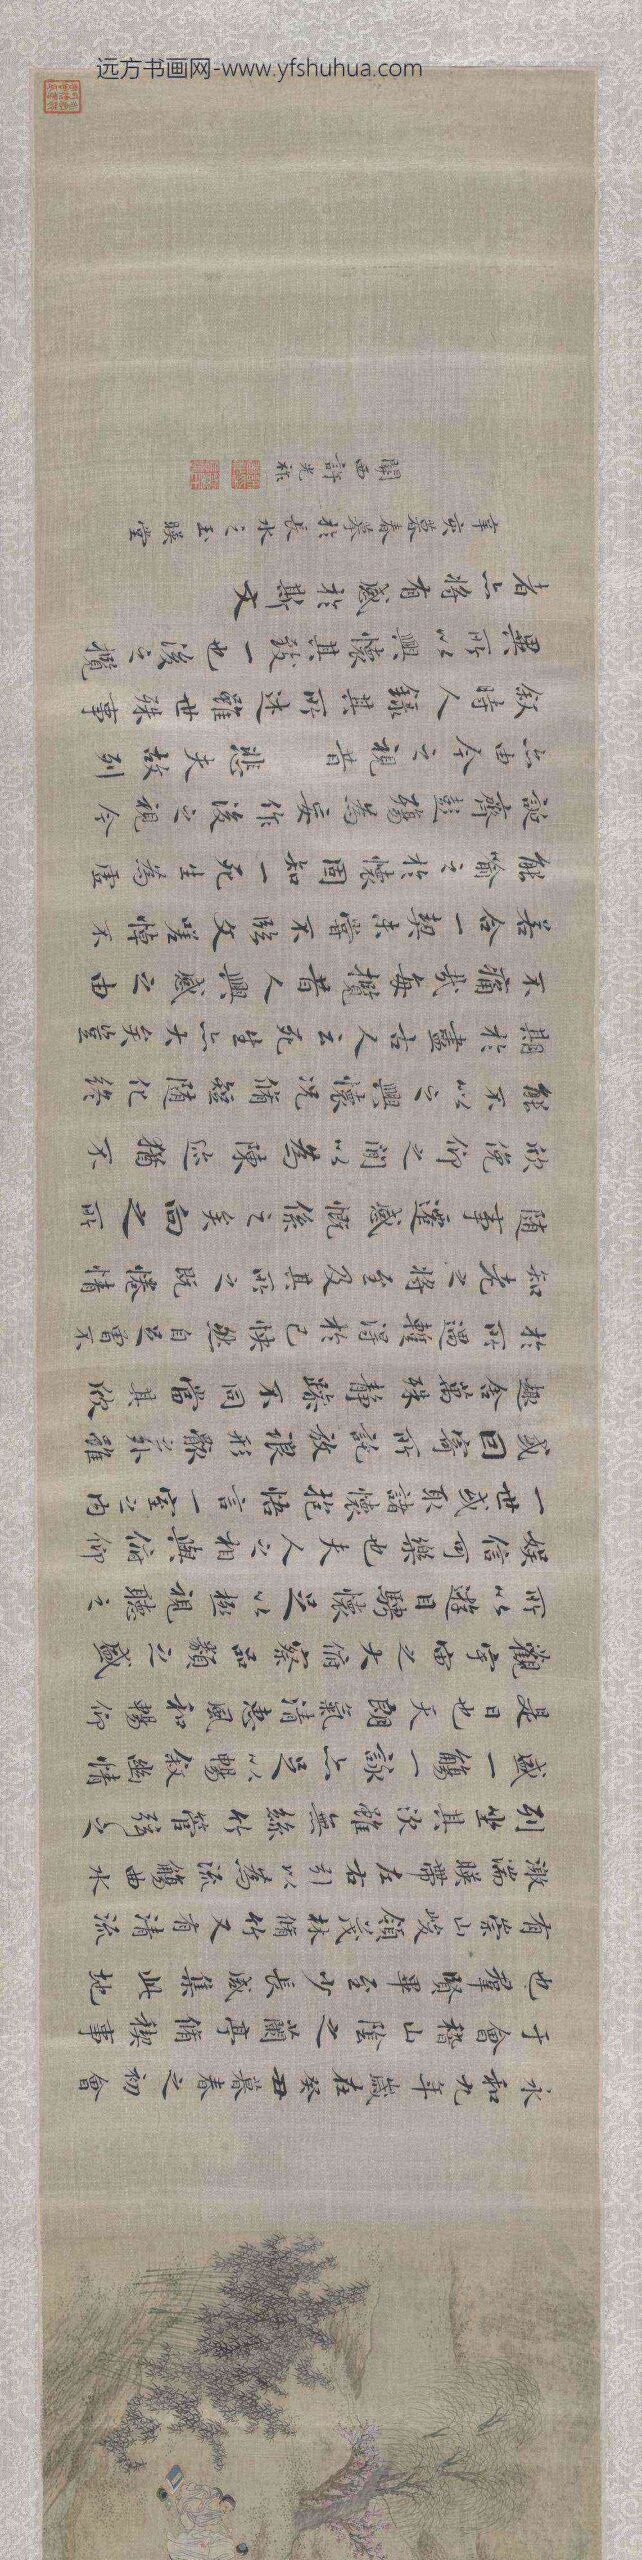 远方书画网-www.yfshuhua.com
永和九年歲在癸丑暮春之初會
于會稽山陰之蘭亭脩禊事
也羣賢畢至少長咸集此地
有崇山峻領茂林脩竹又有清流
激湍暎帶左右引以為流觴曲水
列坐其次雖無絲竹管弦之
盛一觴一詠亦足以暢敘幽情
是日也天朗氣清惠風和暢仰
觀宇宙之大俯察品類之盛
所以遊目騁懷足以極視聽之
娛信可樂也夫人之相與俯仰
一世或取諸懷抱悟言一室之內
或因寄所託放浪形骸之外雖
趣舍萬殊靜躁不同當其欣
於所遇暫得於己怏然自足曾不
知老之將至及其所之既惓情
隨事遷感慨係之矣向之所
欣俛仰之間以為陳迹猶不
能不以之興懷況脩短隨化終
期於盡古人云死生亦大矣豈
不痛哉每攬昔人興感之由
若合一契未嘗不臨文嗟悼不
能喻之於懷固知一死生為虛
誕齊彭殤為妄作後之視今
亦由今之視昔 悲夫故列
敘時人錄其所述雖世殊事
異所以興懷其致一也後之攬
者亦將有感於斯文
辛亥暮春摹於長水之玉暎堂
關西許光祚